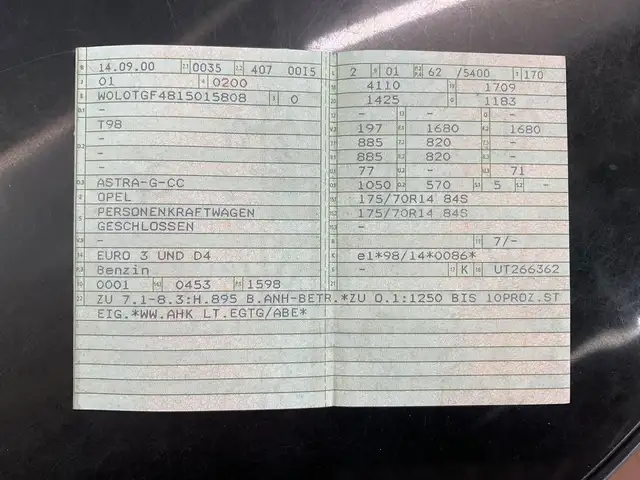 14.09.00 0035 407 0015
01 0200
WOLOTGF4815015808 0
-
T98
-
-
-
ASTRA-G-CC
OPEL
PERSONENKRAFTWAGEN
GESCHLOSSEN
-
EURO 3 UND D4
Benzin
0001 0453 1598
2 01 62 /5400 170
4110 1709
1425 1183
- - -
197 1680 1680
885 820 -
885 820 -
77 - 71
1050 570 5 -
175/70R14 84S
175/70R14 84S
-
7/-
e1*98/14*0086*
- K UT266362
ZU 7.1-8.3:H.895 B.ANH-BETR.*ZU O.1:1250 BIS 10PROZ.ST
EIG.*WW.AHK LT.EGTG/ABE*